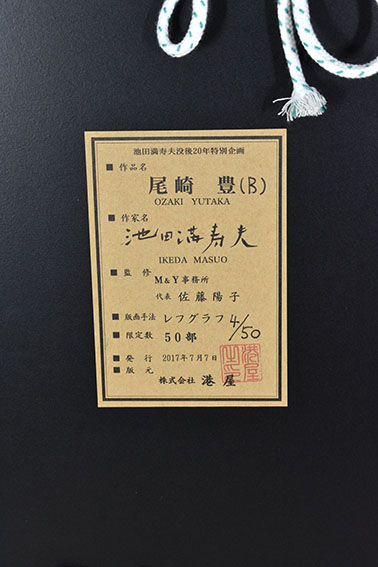 池田満寿夫没後20年特別企画
■ 作品名
尾崎 豊(B)
OZAKI YUTAKA
■ 作家名
池田満寿夫
IKEDA MASUO
■ 監修 M&Y事務所
代表 佐藤陽子
■ 版画手法 レフグラフ
■ 限定数 50部 4/50
■ 発行 2017年7月7日
■ 版元 株式会社 港屋
港屋之印